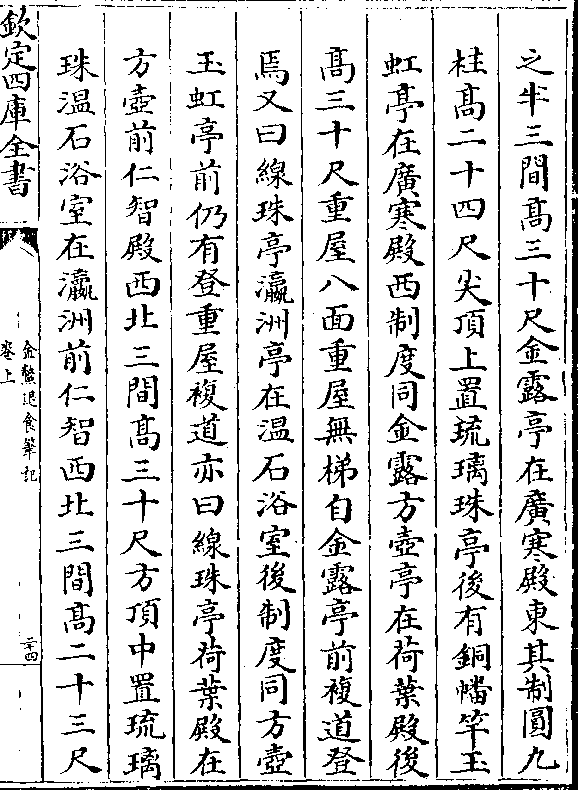 之半三間髙三十尺金露亭在廣寒殿東其制圓九
柱髙二十四尺尖頂上置琉璃珠亭後有銅幡竿玉
虹亭在廣寒殿西制度同金露方壺亭在荷葉殿後
髙三十尺重屋八面重屋無梯自金露亭前複道登
焉又曰線珠亭瀛洲亭在温石浴室後制度同方壺
玉虹亭前仍有登重屋複道亦曰線珠亭荷葉殿在
方壺前仁智殿西北三間髙三十尺方頂中置琉璃
珠温石浴室在瀛洲前仁智西北三間髙二十三尺
欽定四庫全書
金鰲退食筆記
卷上
二十四